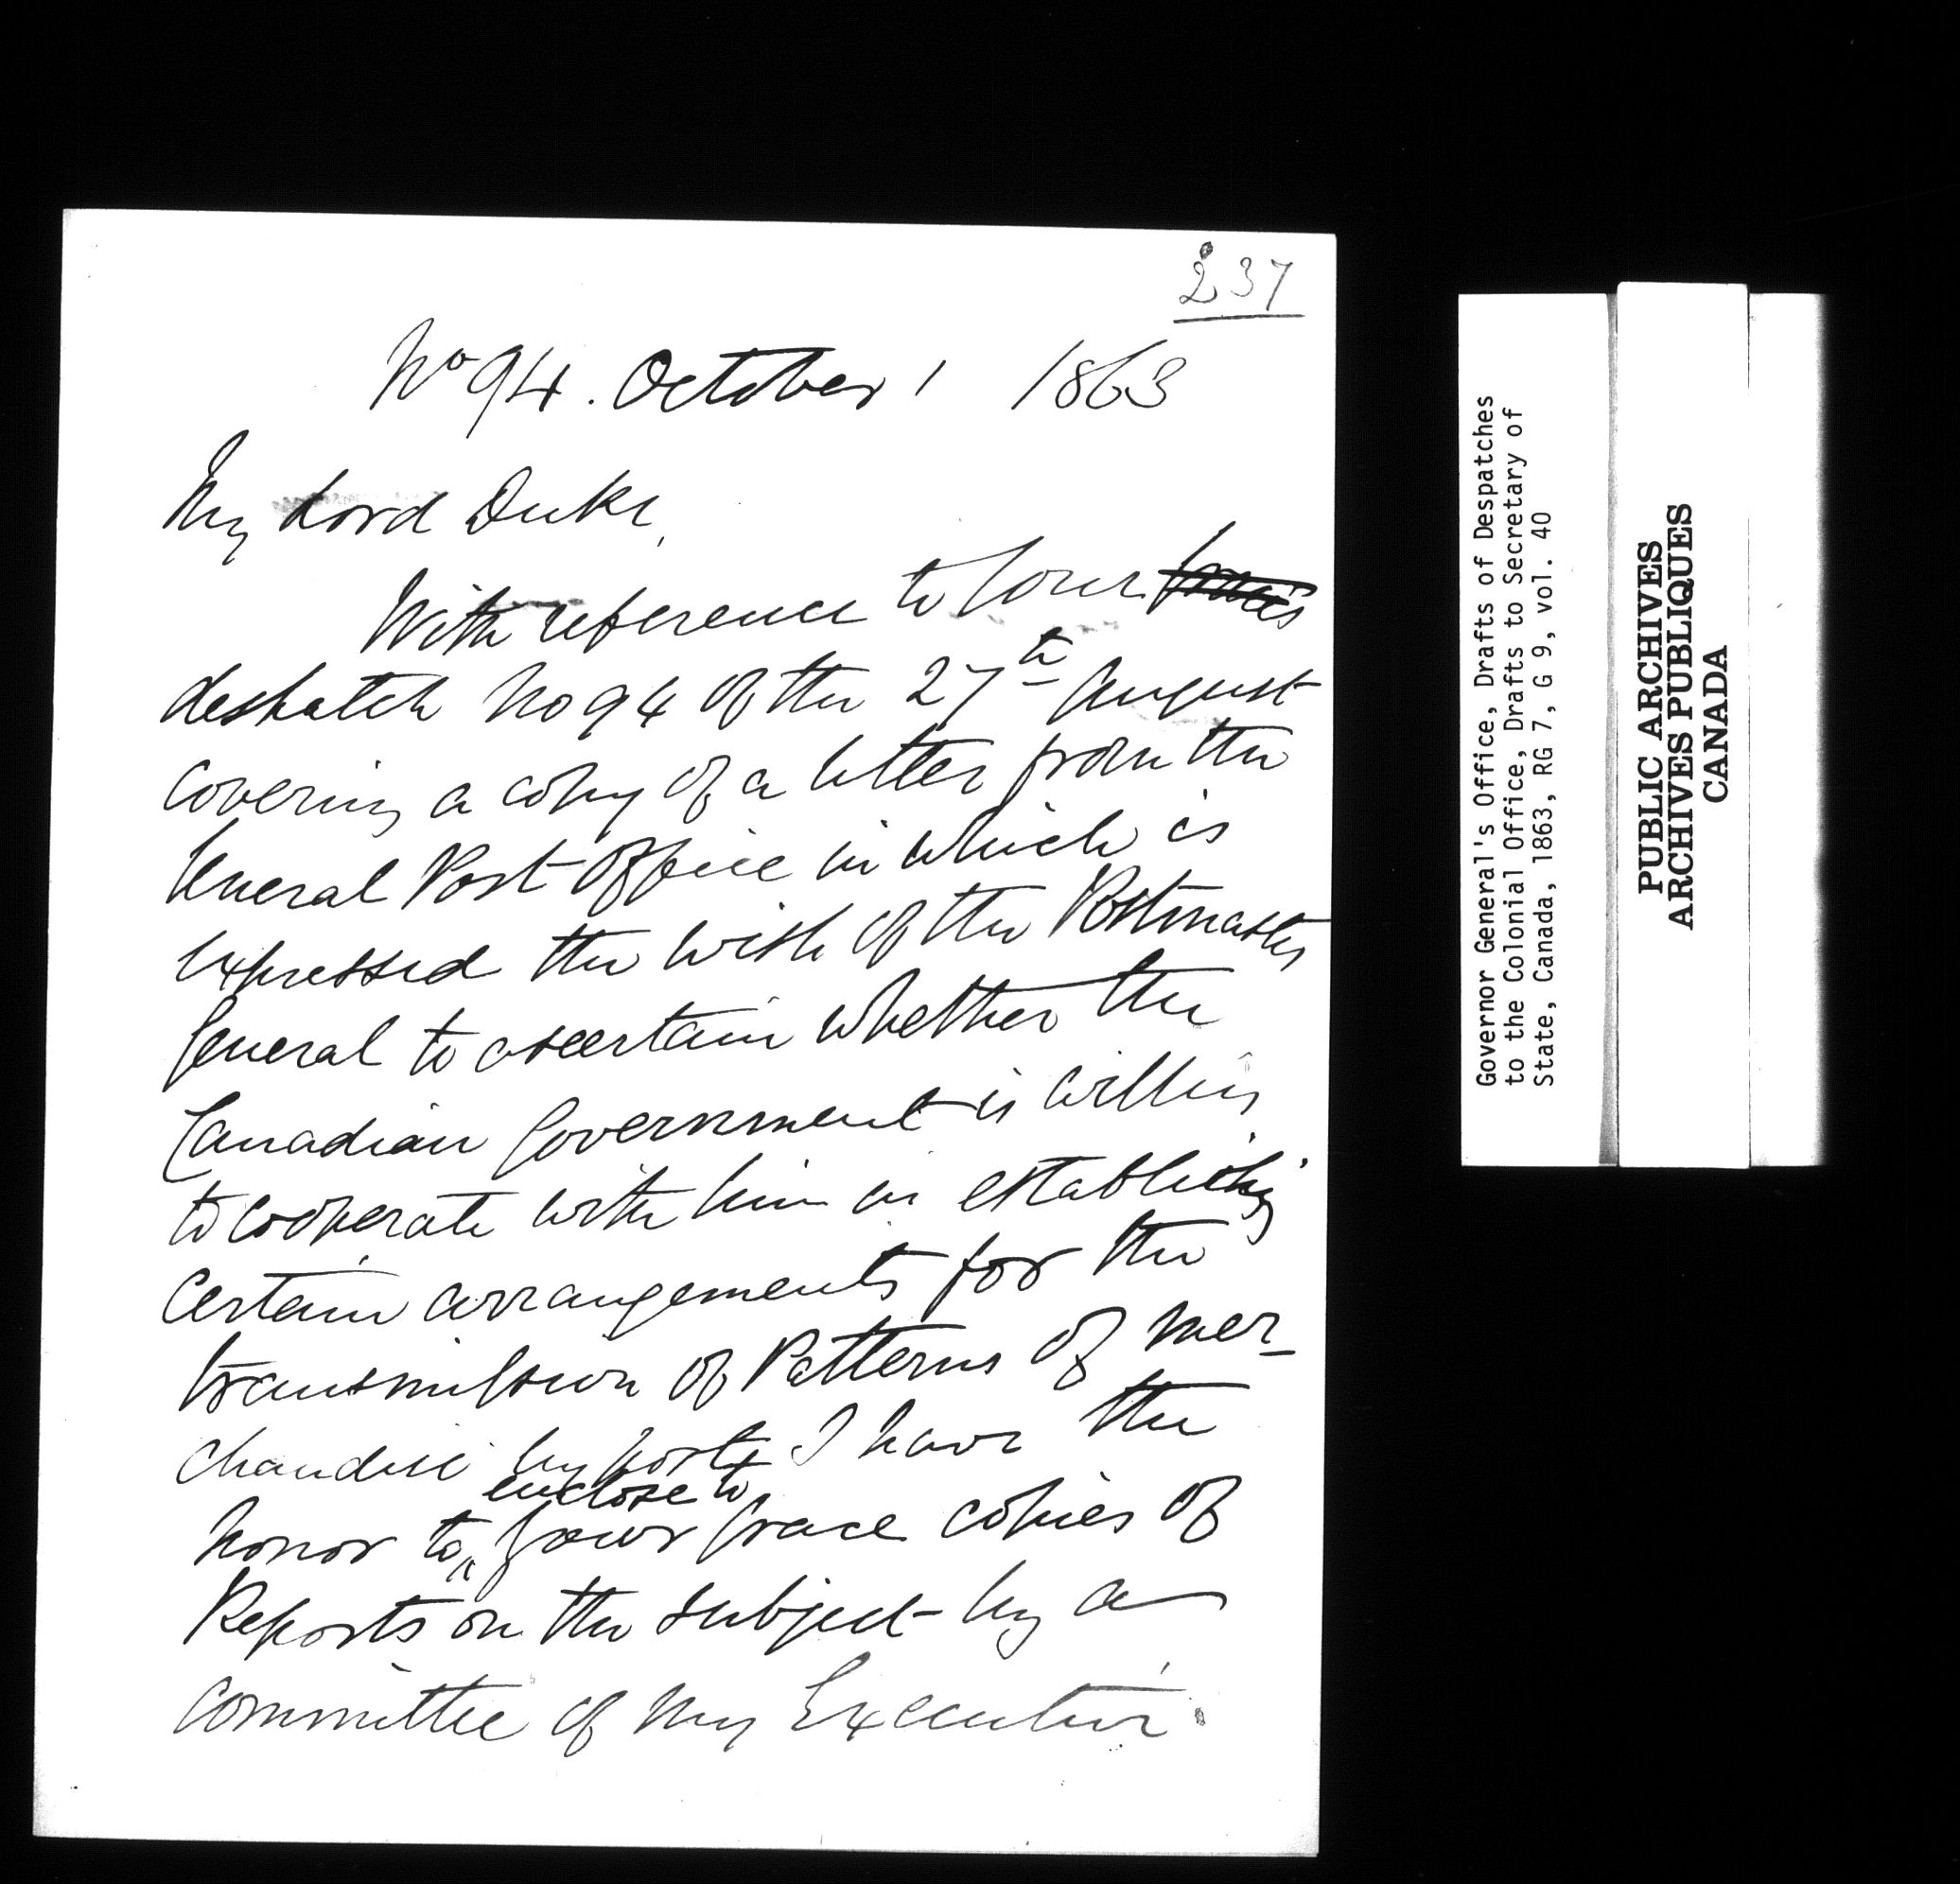 237
No 94. October 1 1863
My Lord Duke,
With reference to Your Grace's
despatch No 94 of the 27th August
covering a copy of a letter from the
General Post Office in which is
expressed the wish of the Postmaster
General to ascertain whether the
Canadian Government is willing
to cooperate with him in establishing
certain arrangements for the
transmission of Patterns of mer-
chandise by post, I have the
enclose to
honor to Your Grace copies of
Reports on the subject by a
Committee of my Executive
Governor General's Office, Drafts of Despatches
to the Colonial Office, Drafts to Secretary of
State, Canada, 1863, RG 7, G 9, vol. 40
PUBLIC ARCHIVES
ARCHIVES PUBLIQUES
CANADA